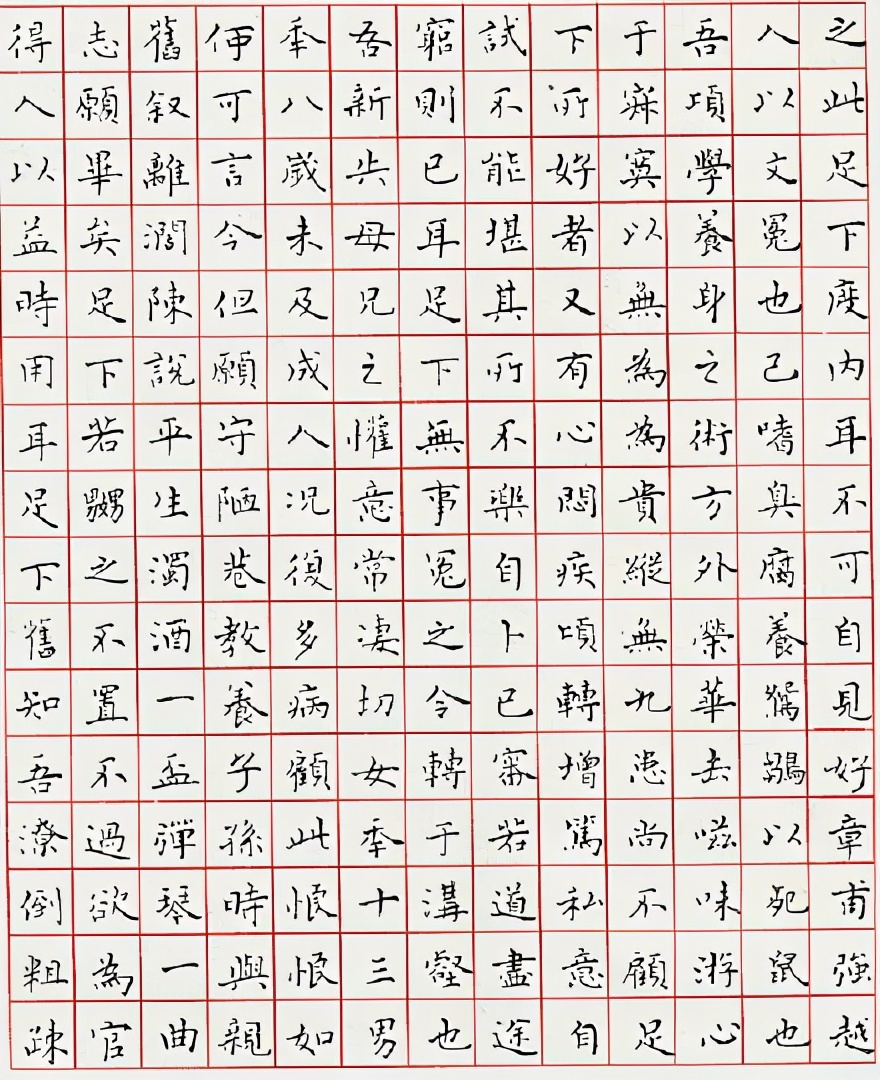 之此足下度内耳不可自見好章甫強越
人以文冕也己嗜臭腐養鵷鶵以死鼠也
吾頃學養身之術方外榮華去滋味游心
于寂寞以無為為貴縱無九患尚不顧足
下所好者又有心悶疾頃轉增篤私意自
試不能堪其所不樂自卜已審若道盡途
窮則已耳足下無事冤之令轉于溝壑也
吾新失母兄之懽意常凄切女年十三男
年八歲未及成人况復多病顧此恨恨如
何可言今但願守陋巷教養子孫時與親
舊叙離濶陳說平生濁酒一盃彈琴一曲
志願畢矣足下若嬲之不置不過欲為官
得人以益時用耳足下舊知吾潦倒粗疎